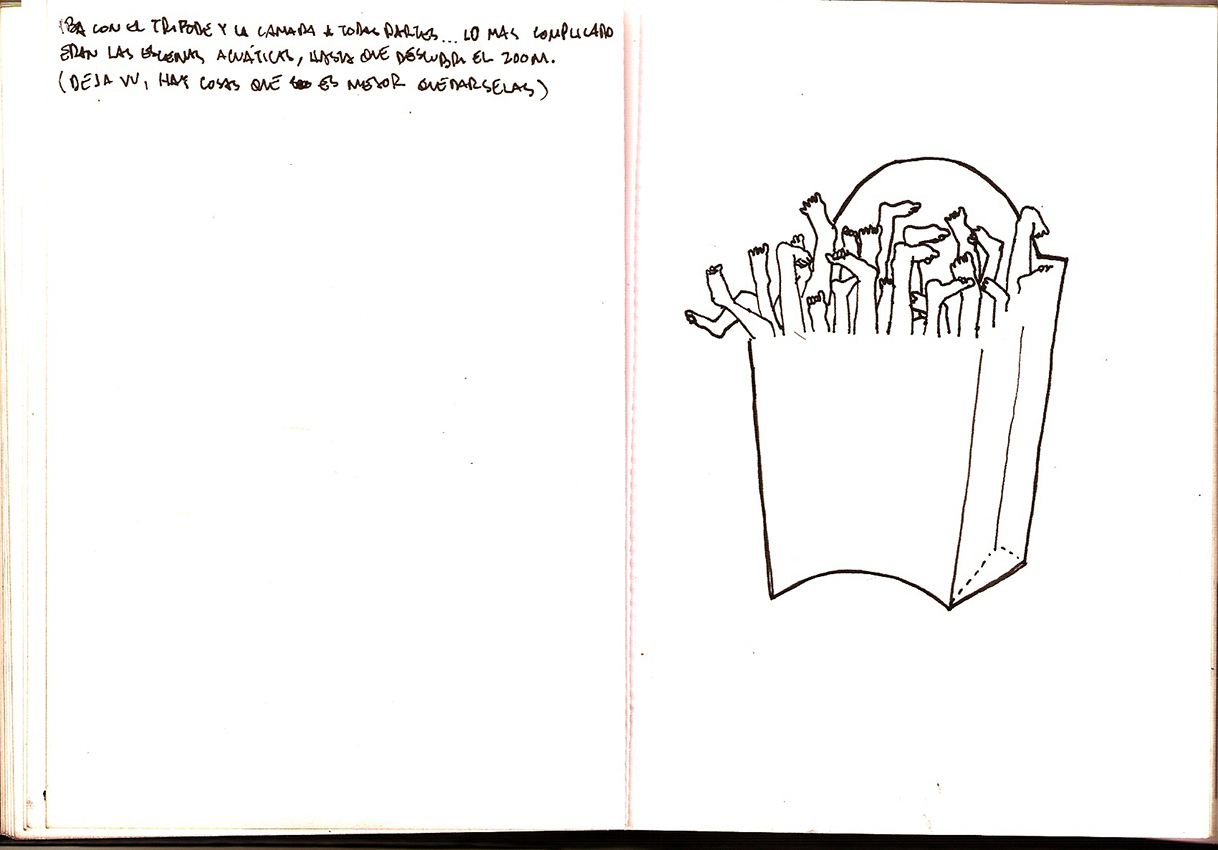 IBA CON EL TRIPODE Y LA CAMARA A TODAS PARTES... LO MAS COMPLICADO
ERAN LAS ESCENAS ACUÁTICAS, HASTA QUE DESCUBRI EL ZOOM.
(DEJA VU, HAY COSAS QUE ES MEJOR QUEDARSELAS)